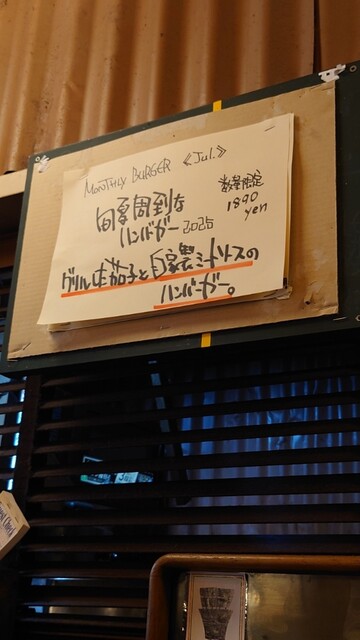 MONTHLY BURGER 《Jul.》
旬夏周到な
ハンバーガー 2025
数量限定
1890
yen
グリル米茄子と自家製ミートソースの
ハンバーガー。